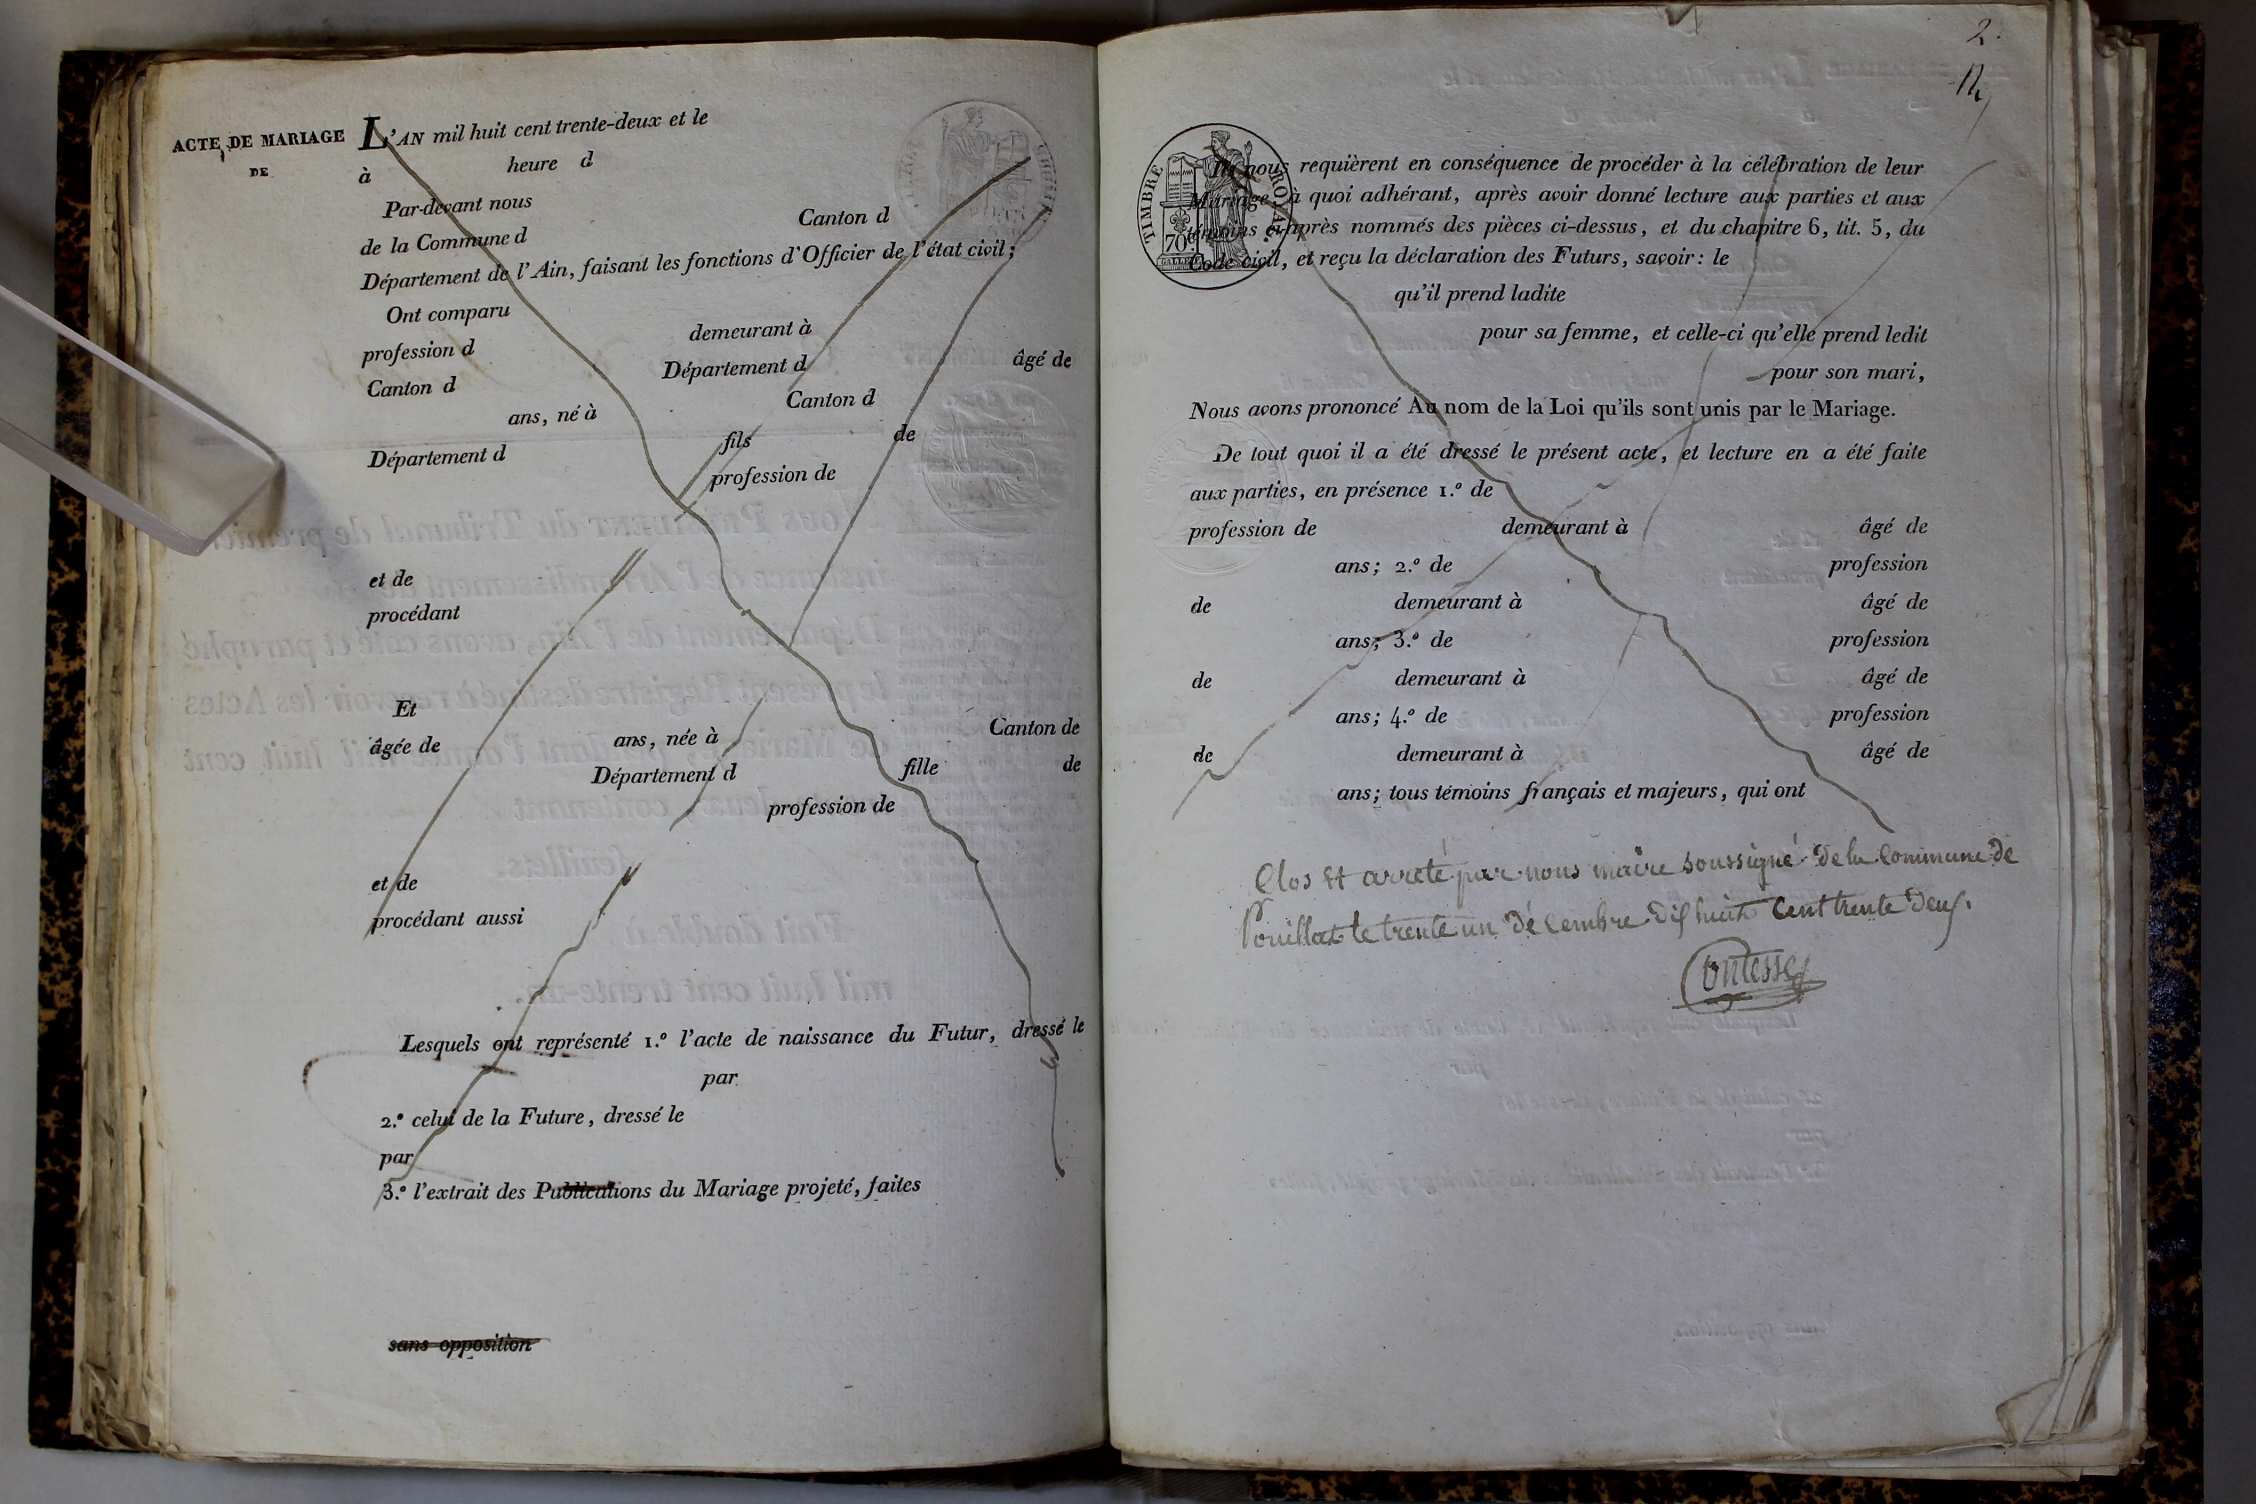 ACTE DE MARIAGE
DE
L'AN mil huit cent trente-deux et le
à heure d
Par-devant nous
de la Commune d Canton d
Département de l'Ain, faisant les fonctions d'Officier de l'état civil;
Ont comparu
profession d demeurant à
Canton d Département d âgé de
ans, né à Canton d
Département d fils de
profession de
et de
procédant
Et
âgée de ans, née à Canton de
Département d fille de
profession de
et de
procédant aussi
Lesquels ont représenté 1.º l'acte de naissance du Futur, dressé le
par
2.º celui de la Future, dressé le
par
3.º l'extrait des Publications du Mariage projeté, faites
sans opposition
2.
TIMBRE ROYAL
70c
Ils nous requièrent en conséquence de procéder à la célébration de leur
Mariage, à quoi adhérant, après avoir donné lecture aux parties et aux
témoins ci-après nommés des pièces ci-dessus, et du chapitre 6, tit. 5, du
Code civil, et reçu la déclaration des Futurs, savoir: le
qu'il prend ladite
pour sa femme, et celle-ci qu'elle prend ledit
pour son mari,
Nous avons prononcé Au nom de la Loi qu'ils sont unis par le Mariage.
De tout quoi il a été dressé le présent acte, et lecture en a été faite
aux parties, en présence 1.º de
profession de demeurant à âgé de
ans; 2.º de profession
de demeurant à âgé de
ans; 3.º de profession
de demeurant à âgé de
ans; 4.º de profession
de demeurant à âgé de
ans; tous témoins français et majeurs, qui ont
Clos et arreté par nous maire soussigné de la Commune de
Pouillat le trente un décembre dix huit Cent trente deux.
Contesse